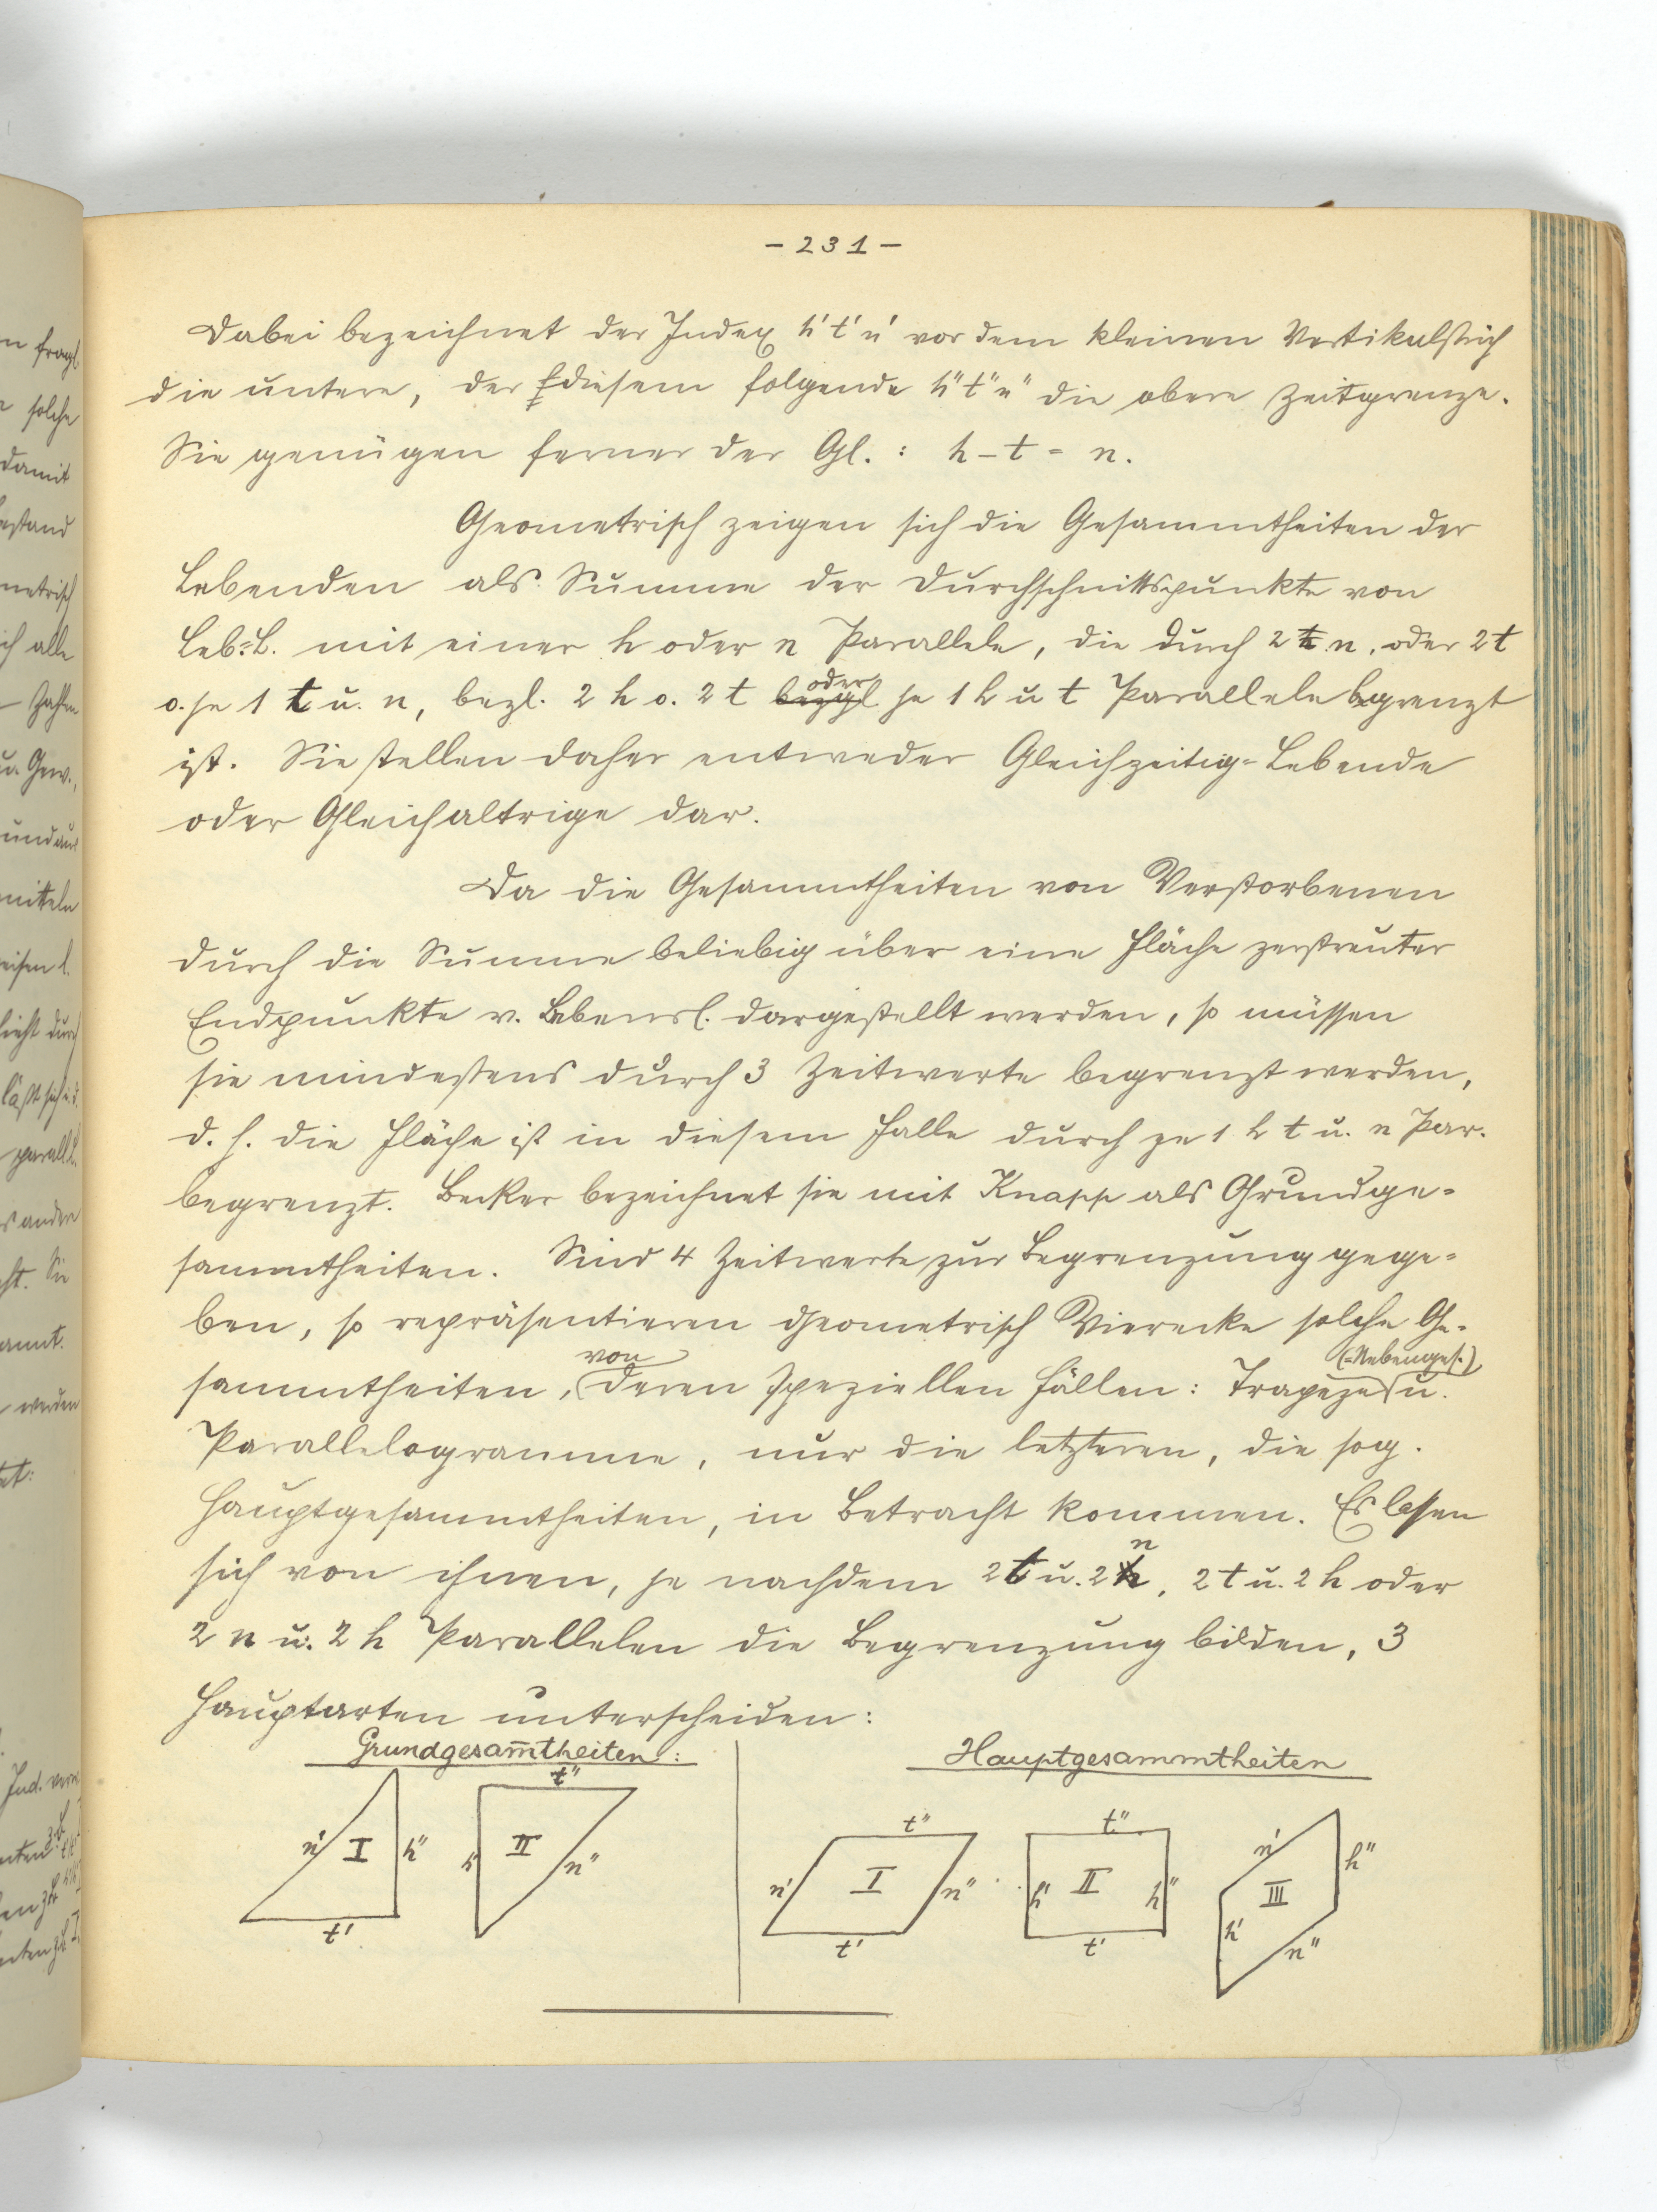 - 231 -
Dabei bezeichnet der Index h' t' n' vor dem kleinen Vertikalstrich
die untere, der diesem folgende h" t" n" die obere Zeitgrenze.
Sie genügen ferner der Gl.: h - t = n.
Geometrisch zeigen sich die Gesammtheiten der
Lebenden als Summe der Durchschnittspunkte von
Leb=L. mit einer h oder n Parallele, die durch 2 n, oder 2 t
o. je 1 t u. n, bezl. 2 h o. 2 t bezgl oder je 1 h u t Parallele begrenzt
ist. Sie stellen daher entweder Gleichzeitig=Lebende
oder Gleichaltrige dar.
Da die Gesammtheiten von Verstorbenen
durch die Summe beliebig über eine Fläche zerstreuter
Endpunkte v. Lebensl. dargestellt werden, so müssen
sie mindestens durch 3 Zeitwerte begrenzt werden,
d. h. die Fläche ist in diesem Falle durch je 1 h t u. n Par.
begrenzt. Becker bezeichnet sie mit Knapp als Grundge=
sammtheiten. Sind 4 Zeitwerte zur Begrenzung gege=
ben, so repräsentieren geometrisch Vierecke solche Ge=
sammtheiten, von deren speziellen Fällen: Trapeze (=Nebenges.) u.
Parallelogramme, nur die letzteren, die sog.
Hauptgesammtheiten, in Betracht kommen. Es lassen
sich von ihnen, je nachdem 2 t u. 2 n, 2 t u. 2 h oder
2 n u. 2 h Parallelen die Begrenzung bilden, 3
Hauptarten unterscheiden:
Grundgesam̅theiten:
Hauptgesammtheiten
n' I h" t'
t" h' II n"
t" n' I n" t'
t" h' II h" t'
n' h" III h' n"